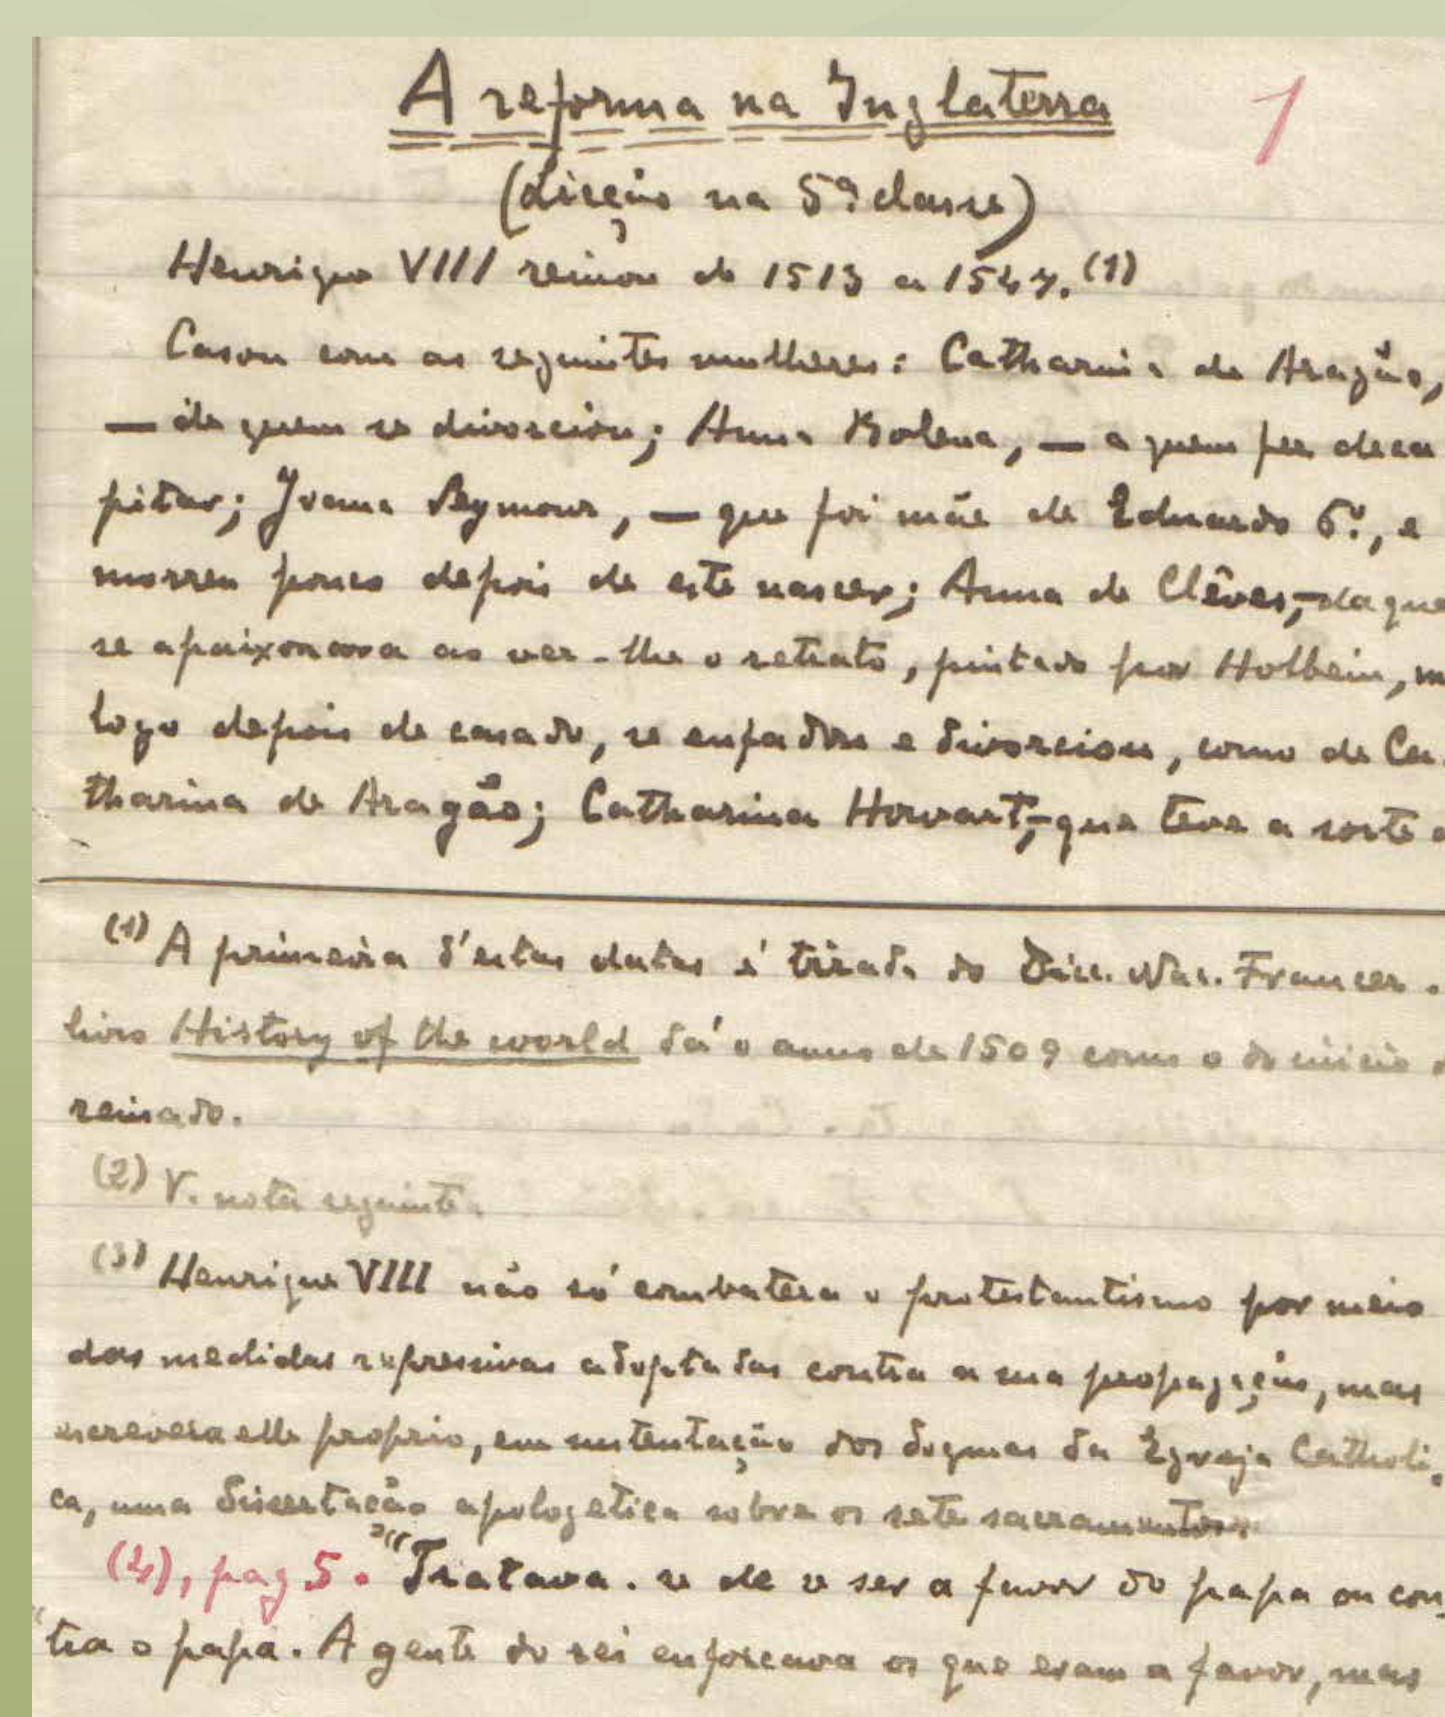 A reforma na Inglaterra
1
(Lição na 5ª classe)
Henrique VIII reinou de 1513 a 1547. (1)
Casou com as seguintes mulheres: Catharina de Aragão,
— de quem se divorciou; Anna Bolena, — a quem fez deca
pitar; Joana Seymour, — que foi mãe de Eduardo 6º, e
morreu pouco depois de este nascer; Anna de Clêves, — da que
se apaixonara ao ver-lhe o retrato, pintado por Holbein, m
logo depois de casado, se enfadou e divorciou, como de Ca-
tharina de Aragão; Catharina Howart, — que teve a sorte
(1) A primeira d'estas datas é tirada do Dicc. Nac. Francez.
livro History of the world dá o anno de 1509 como o do inicio
reinado.
(2) V. nota seguinte.
(3) Henrique VIII não só combatera o protestantismo por meio
das medidas repressivas adoptadas contra a sua propagação, mas
escrevera elle proprio, em sustentação dos dogmas da Egreja Catholi-
ca, uma dissertação apologetica sobre os sete sacramentos.
(4), pag 5. "Tratava-se de se ser a favor do papa ou con-
"tra o papa. A gente do rei enforcava os que eram a favor, mas